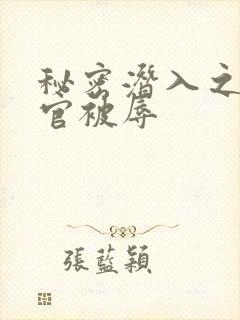 秘密潛入之
官被辱
張藍穎